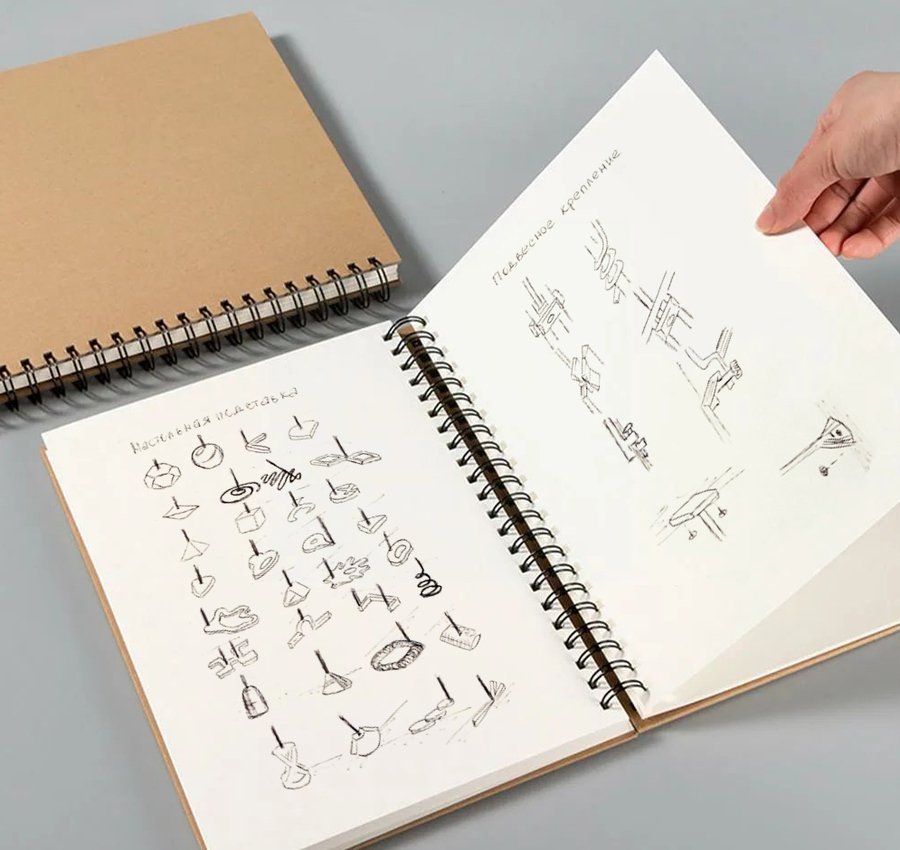 Настольная подставка
Подвесное крепление